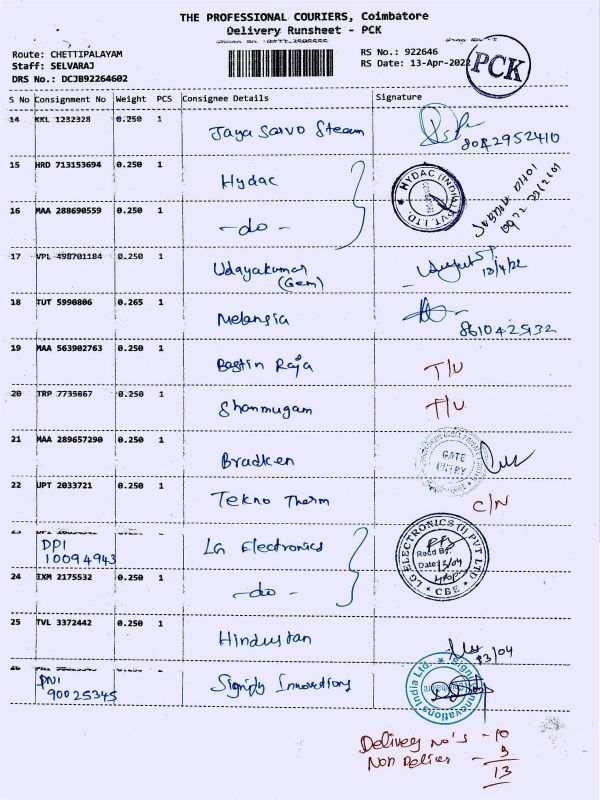 THE PROFESSIONAL COURIERS, Coimbatore
Delivery Runsheet - PCK
Route: CHETTIPALAYAM
Staff: SELVARAJ
DRS No.: DCJB92264602
RS No.: 922646
RS Date: 13-Apr-2022
PCK
S No Consignment No Weight PCS Consignee Details Signature
14 KKL 1232328 0.250 1 Jaya Servo Steam
15 HRD 713153694 0.250 1 Hydac HYDAC (INDIA) PVT. LTD.
16 MAA 288690559 0.250 1 -do-
17 VPL 498701184 0.250 1 Udayakumar 13/4/22
(Gem)
18 TUT 5990806 0.265 1 Melangia
19 MAA 563902763 0.250 1 Bastin Raja T/U
20 TRP 7735867 0.250 1 Shanmugam T/U
21 MAA 289657290 0.250 1 Bradken GATE ENTRY
22 UPT 2033721 0.250 1 Tekno Therm C/N
DPI
10094943 LG Electronics LG ELECTRONICS (I) PVT LTD
Recd By:
Date: 13/04
CBE
24 IXM 2175532 0.250 1 -do-
25 TVL 3372442 0.250 1 Hindustan 13/04
PNI
90025345 Signify Innovations Signify Innovations India Ltd.
Delivery No's - 10
Non Deliver - 3
13